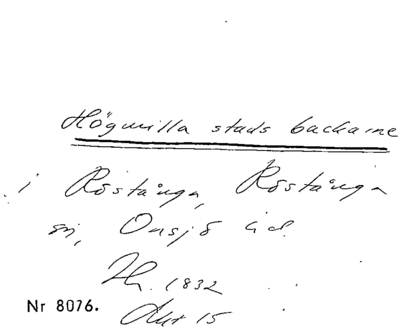 Högmilla stads backarne
i Röstånga, Röstånga
sn, Onsjö hd.
Th. 1832
Nr 8076.
Akt 15